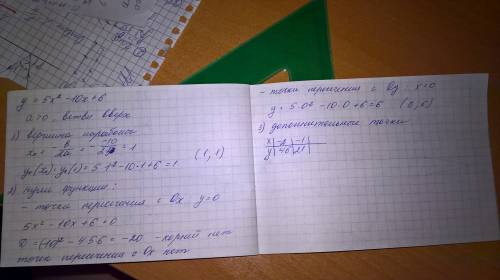 y = 5x² - 10x + 6
a > 0, ветви вверх
1) Вершина параболы
x₀ = - b/2a = - -10/2·5 = 1
y₀(x₀) = y₀(1) = 5·1² - 10·1 + 6 = 1 (1, 1)
2) Нули функции:
- точки пересечения с Ox y = 0
5x² - 10x + 6 = 0
D = (-10)² - 4·5·6 = -20 - корней нет
точек пересечения с Ox нет
- точки пересечения с Oy: x = 0
y = 5·0² - 10·0 + 6 = 6 (0, 6)
3) дополнительные точки
x | -2 | -1 |
y | 46 | 21 |